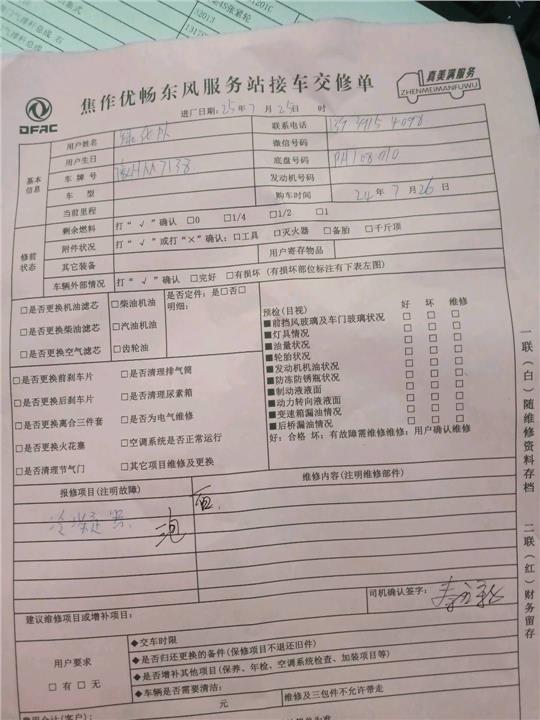 焦作优畅东风服务站接车交修单
DFAC
真美满服务
ZHENMEIMANFUWU
进厂日期：25年7月25日 时
基本信息
用户姓名
联系电话
用户生日
微信号码
车牌号
底盘号码
车型
发动机号码
当前里程
购车时间 24年7月26日
修前状态
剩余燃料 打“√”确认 □0 □1/4 □1/2 □1
附件状况 打“√”或打“×”确认：□工具 □灭火器 □备胎 □千斤顶
其它装备
用户寄存物品
车辆外部情况 打“√”确认 □完好 □有损坏（有损坏部位标注有下表左图）
□是否更换机油滤芯 □柴油机油 是否定件：是□否□
明细：
□是否更换柴油滤芯 □汽油机油
□是否更换空气滤芯 □齿轮油
预检(目视) 好 坏 维修
■前挡风玻璃及车门玻璃状况 □ □ □
■灯具情况 □ □ □
■油量状况 □ □ □
■轮胎状况 □ □ □
■发动机机油状况 □ □ □
■防冻防锈瓶状况 □ □ □
■制动液液面 □ □ □
■动力转向液液面 □ □ □
■变速箱漏油情况 □ □ □
■后桥漏油情况 □ □ □
好：合格 坏：有故障需维修维修：用户确认维修
□是否更换前刹车片 □是否清理排气筒
□是否更换后刹车片 □是否清理尿素箱
□是否更换离合三件套 □是否为电气维修
□是否更换火花塞 □空调系统是否正常运行
□是否清理节气门 □其它项目维修及更换
报修项目(注明故障)
维修内容(注明维修部件)
冷凝器
司机确认签字：
建议维修项目或增补项目：
用户要求
□有 □无
◆交车时限
◆是否归还更换的备件(保修项目不退还旧件)
◆是否增补其他项目(保养、年检、空调系统检查、加装项目等)
◆车辆是否需要清洁：
元
维修及三包件不允许带走
一联（白）随维修资料存档
二联（红）财务留存